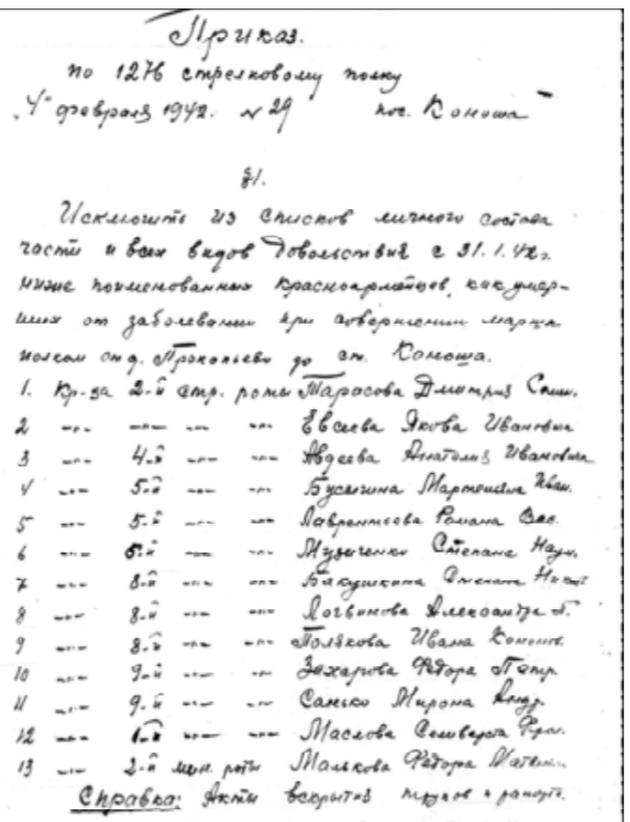 Приказ.
по 1276 стрелковому полку
"4" февраля 1942. № 29 пос. Коноша
§1.
Исключить из списков личного состава
части и всех видов довольствия с 31.1.42г.
ниже поименованных красноармейцев, как умер-
ших от заболевании при совершении марша
полком от д. Прокопьево до ст. Коноша.
1. Кр-ца 2-й стр. роты Тарасова Дмитрия
2 -"- -"- -"- -"- Евсеева Якова Ивановича
3 -"- 4-й -"- -"- Авдеева Анатолия Ивановича
4 -"- 5-й -"- -"- Бусыгина Иван.
5 -"- 5-й -"- -"- Лаврентьева Романа Вас.
6 -"- 5-й -"- -"- Музыченко Степана Наум.
7 -"- 8-й -"- -"- Бякушкина Степана
8 -"- 8-й -"- -"- Логвинова Александра Г.
9 -"- 8-й -"- -"- Полякова Ивана Кононов.
10 -"- 9-й -"- -"- Захарова Федора Петр.
11 -"- 9-й -"- -"- Санько Мирона Андр.
12 -"- 1-й -"- -"- Маслова Селиверста
13 -"- 2-й мин. роты Малькова Федора Матв.
Справка: Акты вскрытия трупов и рапорт.